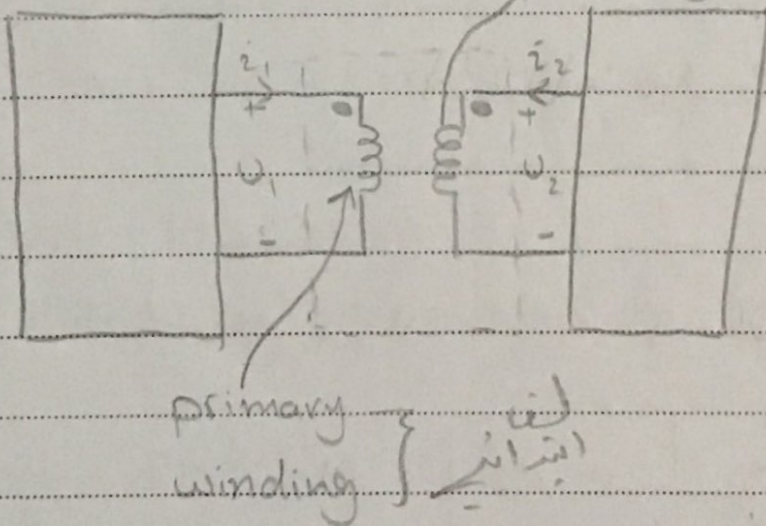 i₁
i₂
+
+
υ₁
υ₂
-
-
primary
winding
لف
ابتدائي